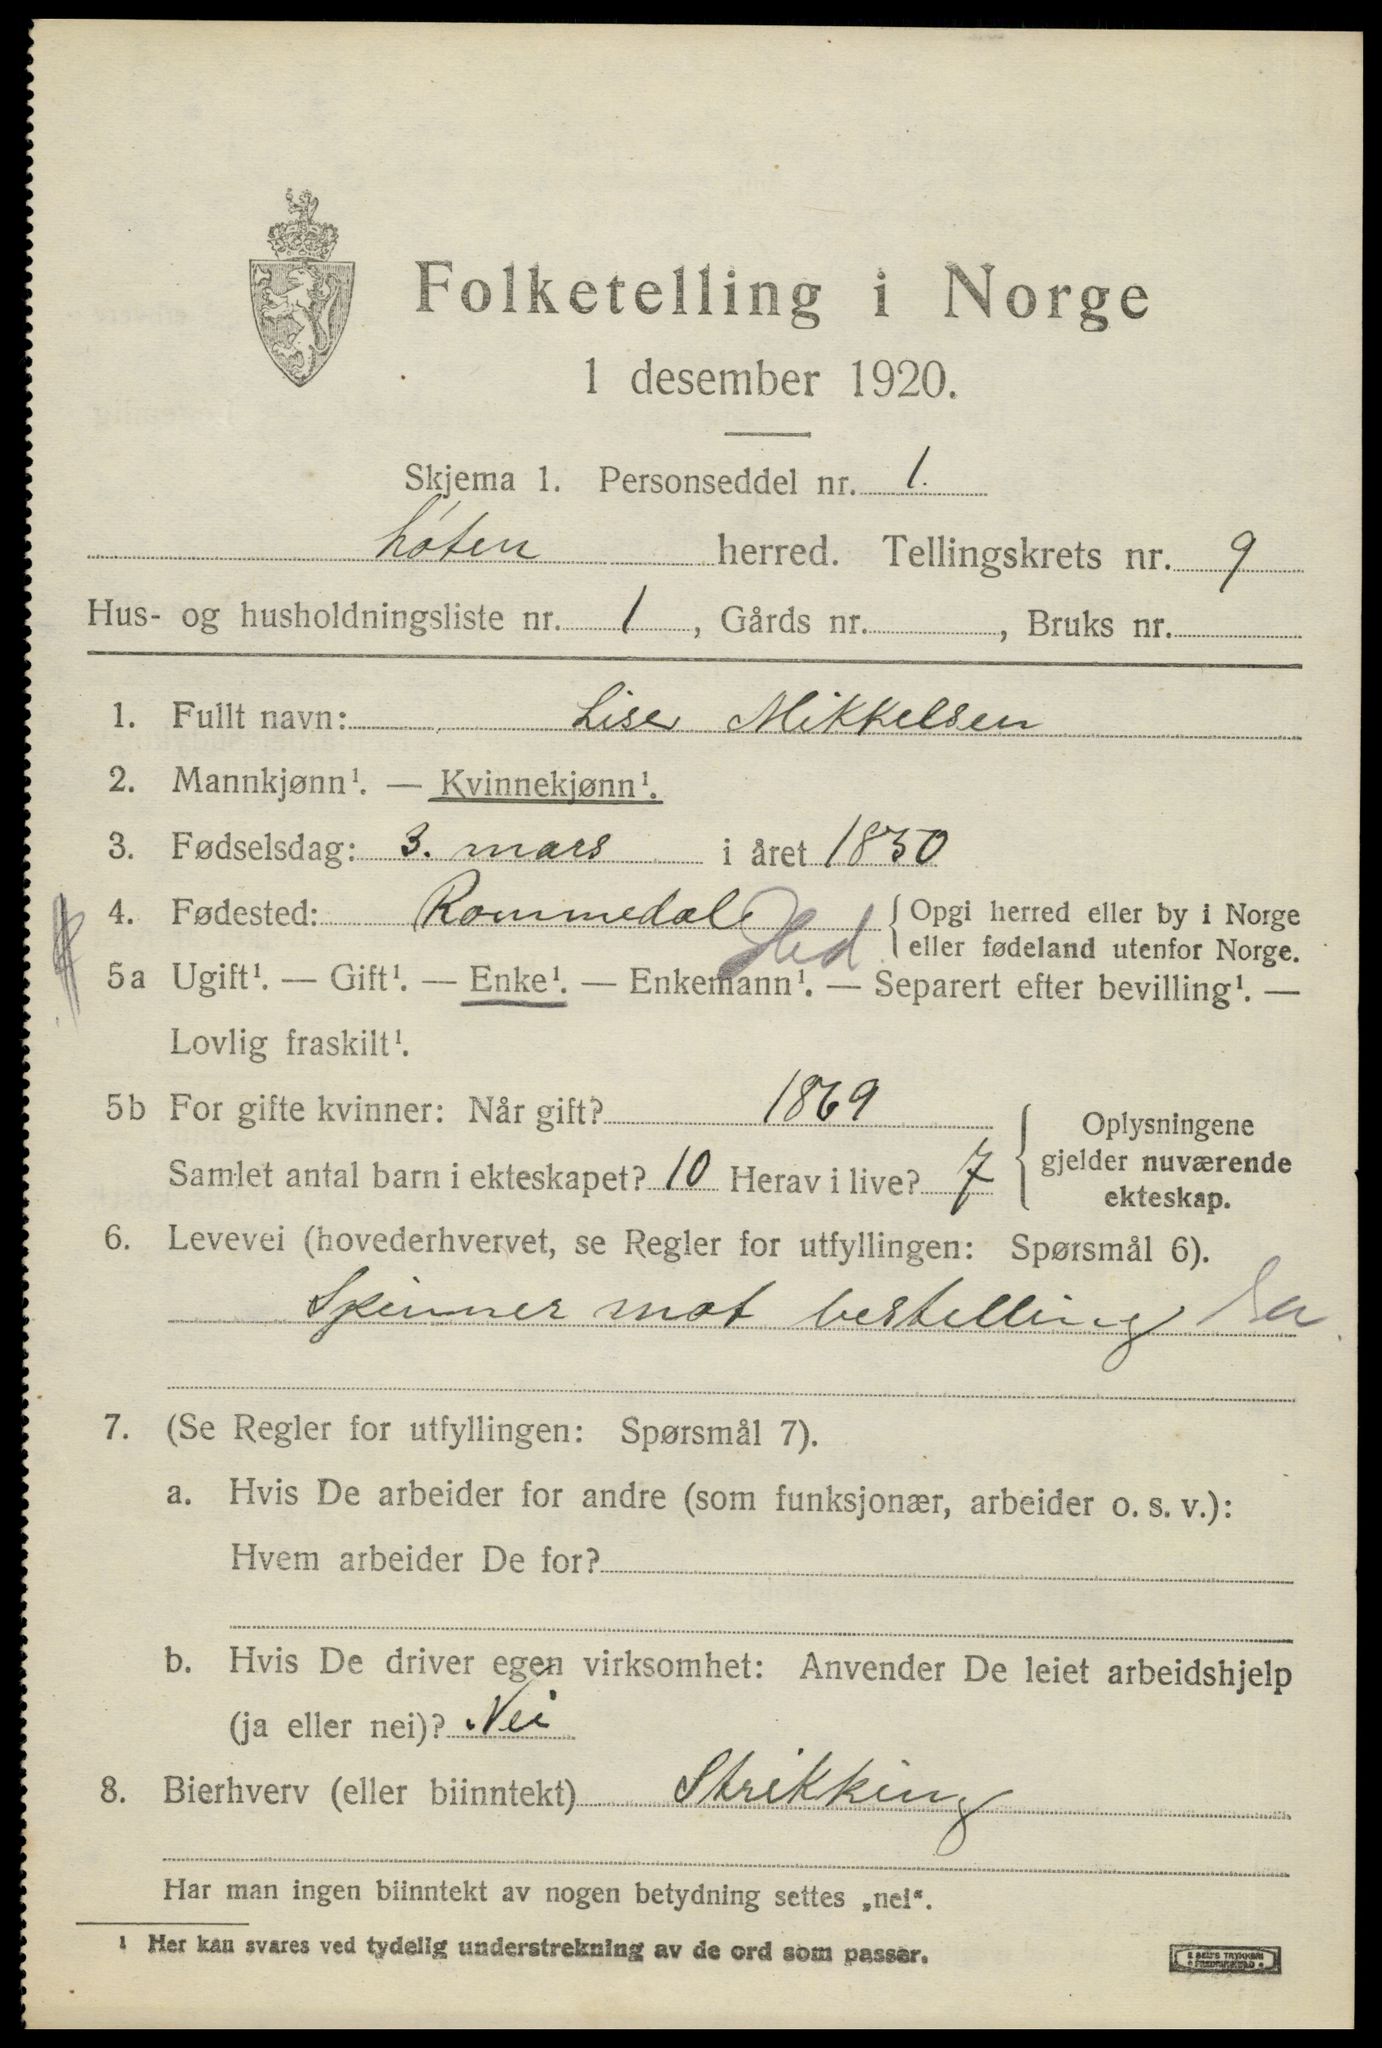 Folketelling i Norge
1 desember 1920.
Skjema 1. Personseddel nr. 1.
Løten herred. Tellingskrets nr. 9
Hus- og husholdningsliste nr. 1, Gårds nr. , Bruks nr.
1. Fullt navn: Lise Mikkelsen
2. Mannkjønn¹. — Kvinnekjønn¹.
3. Fødselsdag: 3. mars i året 1850
4. Fødested: Rommedal Hed { Opgi herred eller by i Norge
eller fødeland utenfor Norge.
5a Ugift¹. — Gift¹. — Enke¹. — Enkemann¹. — Separert efter bevilling¹. —
Lovlig fraskilt¹.
5b For gifte kvinner: Når gift? 1869
Samlet antal barn i ekteskapet? 10 Herav i live? 7
{ Oplysningene
gjelder nuværende
ekteskap.
6. Levevei (hovederhvervet, se Regler for utfyllingen: Spørsmål 6).
Spinner mot bestelling
7. (Se Regler for utfyllingen: Spørsmål 7).
a. Hvis De arbeider for andre (som funksjonær, arbeider o. s. v.):
Hvem arbeider De for?
b. Hvis De driver egen virksomhet: Anvender De leiet arbeidshjelp
(ja eller nei)? Nei
8. Bierhverv (eller biinntekt) Strikking
Har man ingen biinntekt av nogen betydning settes „nei“.
¹ Her kan svares ved tydelig understrekning av de ord som passer.